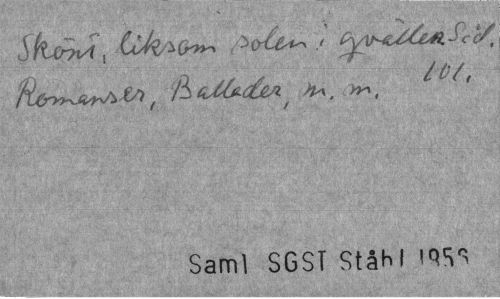 Skönt, liksom solen i qvällen Sid.
Romanser, Ballader, m. m. 101.
Saml SGST Ståhl 1956